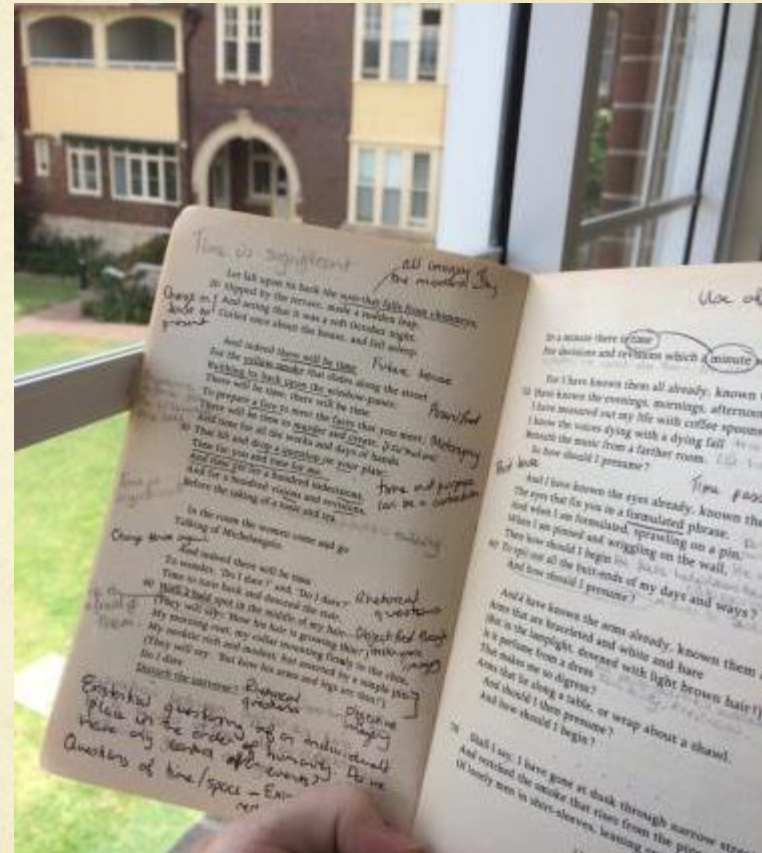 Time is significant
all imagery
the modern
Let fall upon its back the soot that falls from chimneys,
Slipped by the terrace, made a sudden leap,
And seeing that it was a soft October night,
Curled once about the house, and fell asleep.
Change in
tense to
present
And indeed there will be time
For the yellow smoke that slides along the street
Rubbing its back upon the window-panes;
There will be time, there will be time
To prepare a face to meet the faces that you meet;
There will be time to murder and create,
And time for all the works and days of hands
That lift and drop a question on your plate;
Time for you and time for me,
And time yet for a hundred indecisions,
And for a hundred visions and revisions,
Before the taking of a toast and tea.
Future tense
Personified
Metonymy
Time and purpose
can be a contradiction
Time is
significant
In the room the women come and go
Talking of Michelangelo.
Change tense again
And indeed there will be time
To wonder, 'Do I dare?' and, 'Do I dare?'
Time to turn back and descend the stair,
With a bald spot in the middle of my hair—
(They will say: 'How his hair is growing thin!')
My morning coat, my collar mounting firmly to the chin,
My necktie rich and modest, but asserted by a simple pin—
(They will say: 'But how his arms and legs are thin!')
Do I dare
Disturb the universe?
Rhetorical
questions
Objectified through
imagery
Rhetorical
questions
imagery
Existential questioning of an individual's
place in the order of humanity. Do we
have any control over events?
Questions of time/space –
Use of
In a minute there is time
For decisions and revisions which a minute
For I have known them all already, known
Have known the evenings, mornings, afternoons
I have measured out my life with coffee spoons
I know the voices dying with a dying fall
Beneath the music from a farther room.
So how should I presume?
Past tense
Time
And I have known the eyes already, known
The eyes that fix you in a formulated phrase,
And when I am formulated, sprawling on a pin,
When I am pinned and wriggling on the wall,
Then how should I begin
To spit out all the butt-ends of my days and ways?
And how should I presume?
And I have known the arms already, known them
Arms that are braceleted and white and bare
(But in the lamplight, downed with light brown hair!)
Is it perfume from a dress
That makes me so digress?
Arms that lie along a table, or wrap about a shawl.
And should I then presume?
And how should I begin?
70
Shall I say, I have gone at dusk through narrow
And watched the smoke that rises from the pipes
Of lonely men in shirt-sleeves, leaning